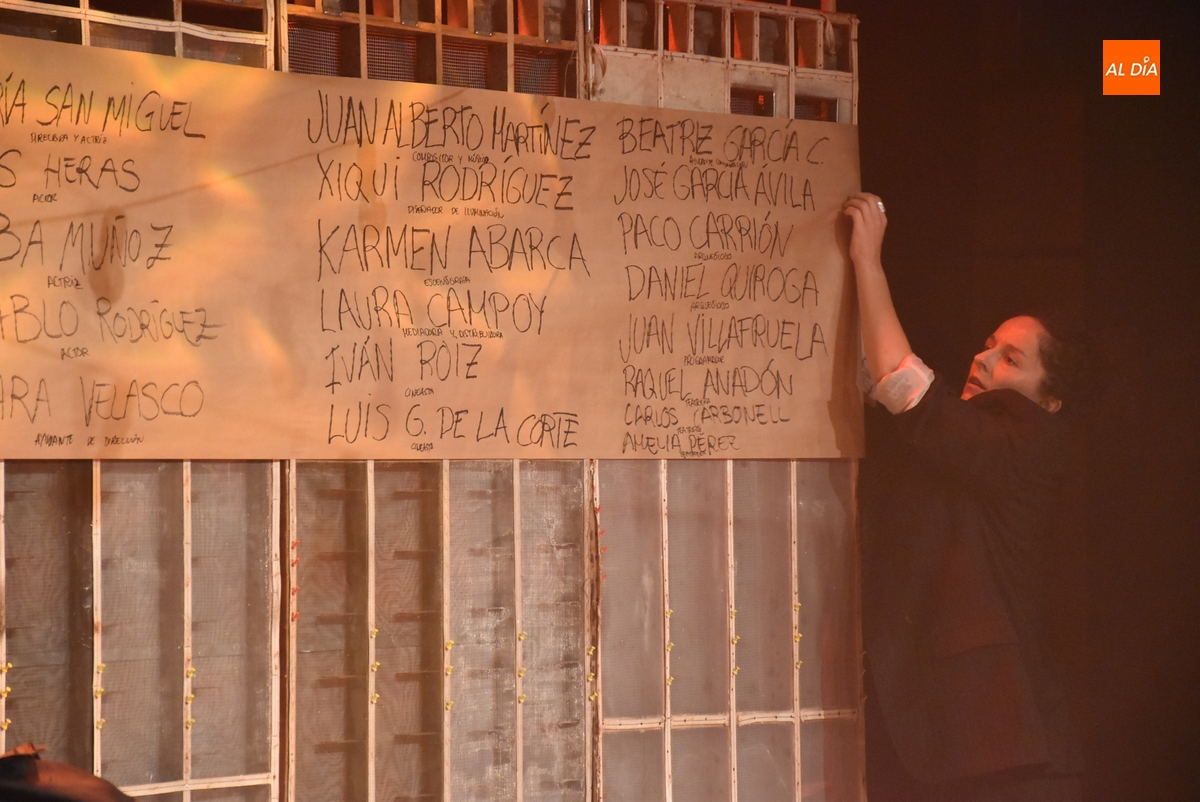 ÍA SAN MIGUEL
DIRECTORA Y ACTRIZ
S HERAS
ACTOR
BA MUÑOZ
ACTRIZ
ABLO RODRÍGUEZ
ACTOR
ARA VELASCO
AYUDANTE DE DIRECCIÓN
JUAN ALBERTO MARTÍNEZ
COMPOSITOR Y MÚSICO
XIQUI RODRÍGUEZ
DISEÑADOR DE ILUMINACIÓN
KARMEN ABARCA
ESCENÓGRAFA
LAURA CAMPOY
MEDIADORA Y DISTRIBUIDORA
IVÁN ROIZ
CINEASTA
LUIS G. DE LA CORTE
CINEASTA
BEATRIZ GARCÍA C
JOSÉ GARCÍA ÁVILA
PACO CARRIÓN
ARQUEÓLOGO
DANIEL QUIROGA
ARQUEÓLOGO
JUAN VILLAFRUELA
PROGRAMADOR
RAQUEL ANADÓN
CARLOS CARBONELL
AMELIA PÉREZ
AL DÍA